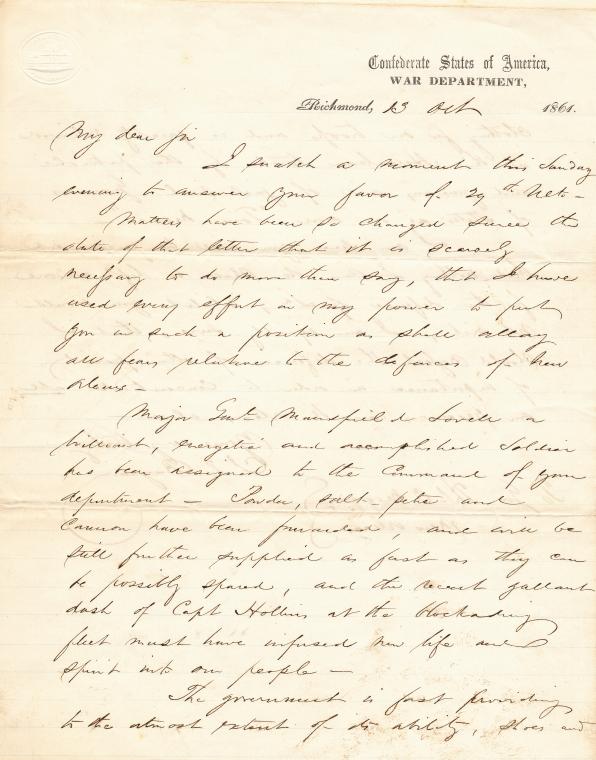 Confederate States of America,
WAR DEPARTMENT,
Richmond, 13 Oct 1861.
My dear Sir
I snatch a moment this Sunday
evening to answer your favor of 29th Ulto -
Matters have been so changed since the
date of that letter that it is scarcely
necessary to do more than say, that I have
used every effort in my power to put
you in such a position as shall allay
all fears relative to the defences of New
Orleans -
Major Genl Mansfield Lovell a
brilliant, energetic and accomplished Soldier
has been assigned to the Command of your
department - Powder, salt-petre and
Cannon have been forwarded, and will be
still further supplied as fast as they can
be possibly spared, and the recent gallant
dash of Capt Hollins at the blockading
fleet must have infused new life and
spirit into our people -
The government is fast providing
to the utmost extent of its ability, shoes and